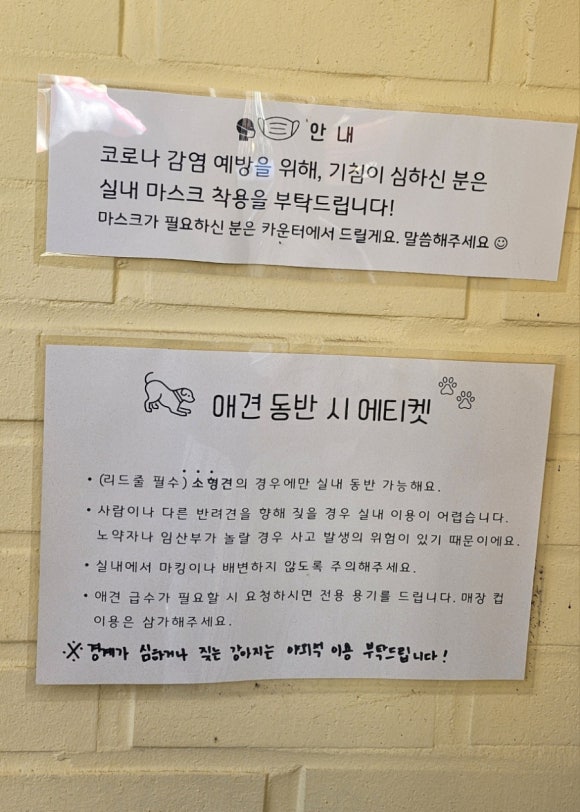 안 내
코로나 감염 예방을 위해, 기침이 심하신 분은
실내 마스크 착용을 부탁드립니다!
마스크가 필요하신 분은 카운터에서 드릴게요. 말씀해주세요 ☺
애견 동반 시 에티켓
• (리드줄 필수) 소형견의 경우에만 실내 동반 가능해요.
• 사람이나 다른 반려견을 향해 짖을 경우 실내 이용이 어렵습니다.
노약자나 임산부가 놀랄 경우 사고 발생의 위험이 있기 때문이에요.
• 실내에서 마킹이나 배변하지 않도록 주의해주세요.
• 애견 급수가 필요할 시 요청하시면 전용 용기를 드립니다. 매장 컵
이용은 삼가해주세요.
※ 경계가 심하거나 짖는 강아지는 야외석 이용 부탁드립니다!